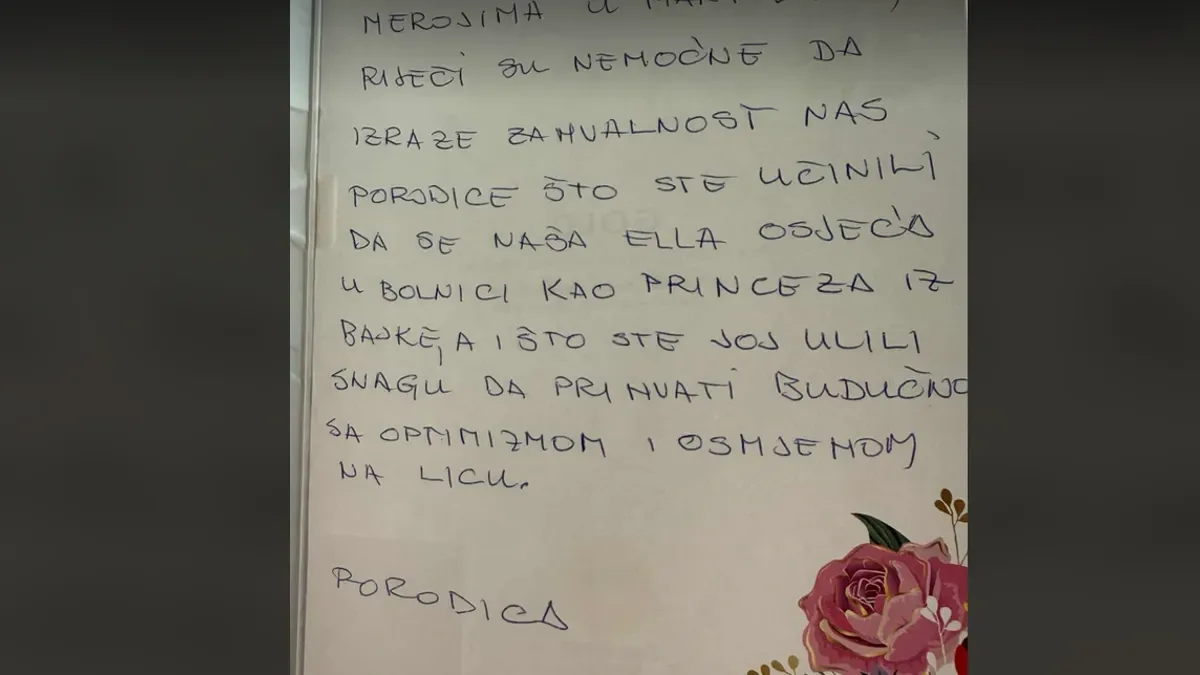 HEROJIMA U
RIJEČI SU NEMOĆNE DA
IZRAZE ZAHVALNOST NAS
PORODICE ŠTO STE UČINILI
DA SE NAŠA ELLA OSJEĆA
U BOLNICI KAO PRINCEZA IZ
BAJKE, A I ŠTO STE JOJ ULILI
SNAGU DA PRIHVATI BUDUČNO
SA OPTIMIZMOM I OSMJEHOM
NA LICU.
PORODICA